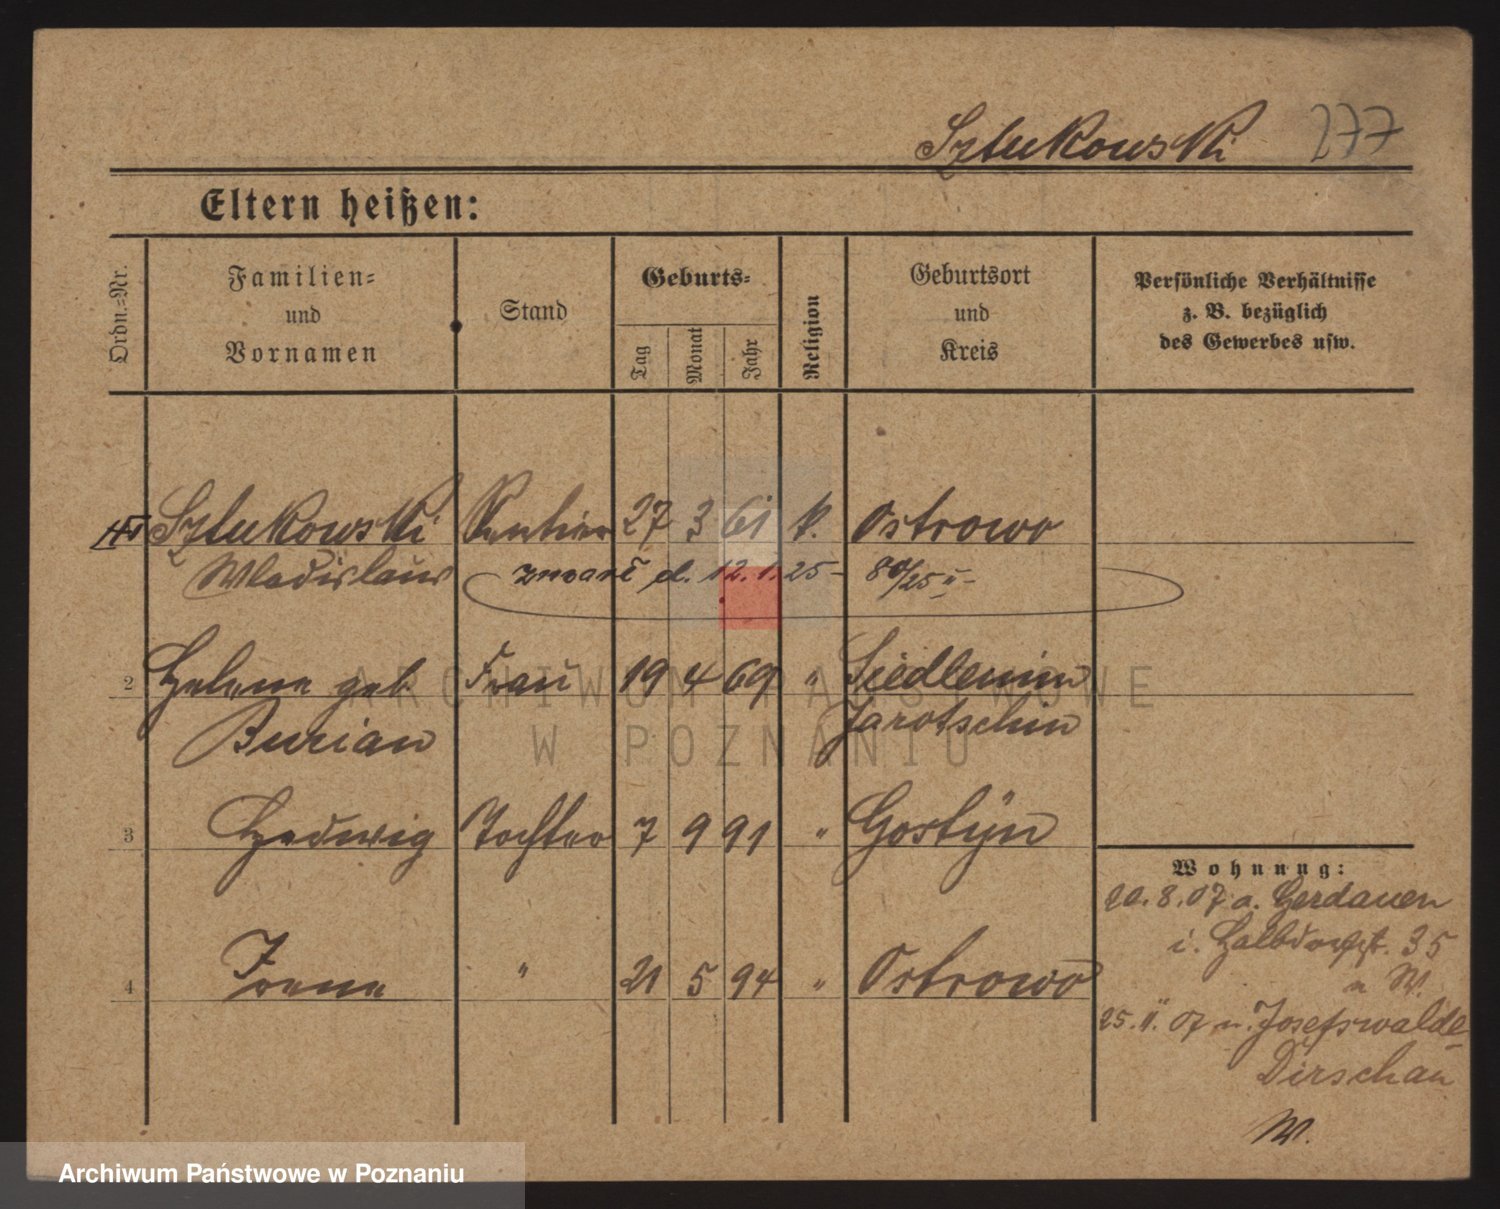 Sztukowski 277
Eltern heißen:
Ordn.=Nr.
Familien=
und
Vornamen
Stand
Geburts=
Tag
Monat
Jahr
Religion
Geburtsort
und
Kreis
Persönliche Verhältnisse
z. B. bezüglich
des Gewerbes usw.
Sztukowski Rentier 27 3 61 k. Ostrowo
Wladislaus zmarł d. 12.1.25- 80/25 II-
2 Helene geb. Frau 19 4 69 " Siedlemin
Burian Jarotschin
3 Hedwig Tochter 7 9 91 " Gostÿn
4 Irene " 21 5 94 " Ostrowo
Wohnung:
20.8.07 a. Gerdauen
i. Halbdorfst. 35
W.
25.11.07 n. Josefswalde-
Dirschau
W.
ARCHIWUM PAŃSTWOWE
W POZNANIU
Archiwum Państwowe w Poznaniu